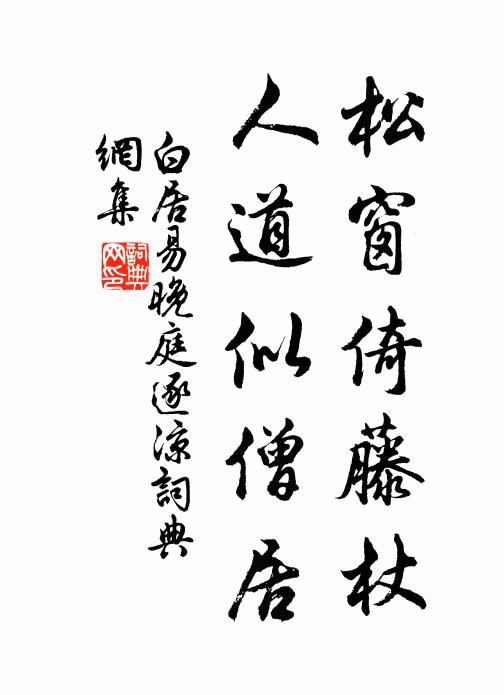 松窗倚藤杖
人道似僧居
白居易晚庭逐凉詞典
網集
詞典
网印